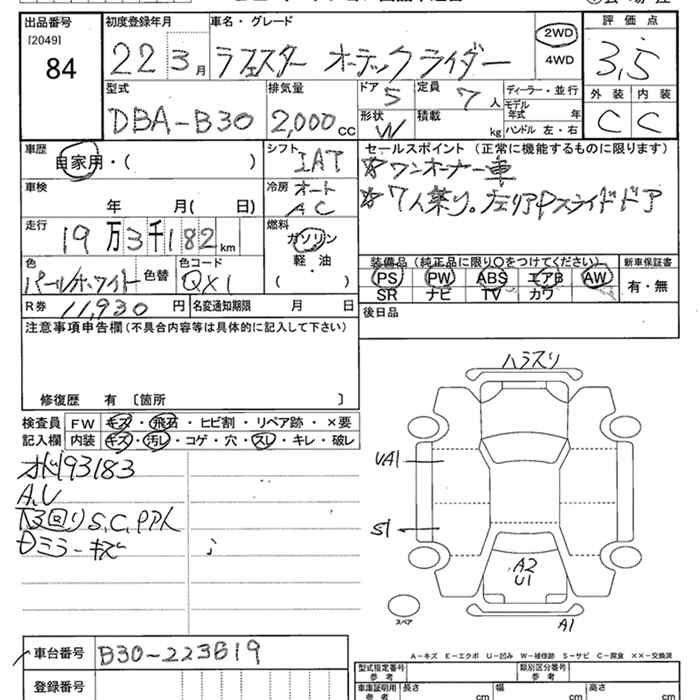 出品番号
[2049]
84
初度登録年月
22 3月
車名・グレード
ラフェスター オーテックライダー
2WD
4WD
評価点
3.5
外装 内装
C C
型式
DBA-B30
排気量
2,000cc
ドア
5
定員
7人
形状
W
積載
kg
ディーラー・並行
モデル年式 年
ハンドル 左・右
車歴
自家用・( )
シフト
IAT
車検
年 月( 日)
冷房
オート
AC
走行
19万3千182km
燃料
ガソリン
軽・油
( )
色
パールホワイト
色替
色コード
QX1
R券 11,930円
名変通知期限 月 日
セールスポイント (正常に機能するものに限ります)
☆ワンオーナー車
☆7人乗り。左リアPスライドドア
装備品(純正品に限り○をつけてください)
PS PW ABS エアB AW
SR ナビ TV カワ
新車保証書
有・無
後日品
注意事項申告欄(不具合内容等は具体的に記入して下さい)
修復歴 有 〔箇所 〕
検査員記入欄
FW キズ・飛石・ヒビ割・リペア跡・×要
内装 キズ・汚レ・コゲ・穴・スレ・キレ・破レ
193183
A,U
下回りS,C,PP人
Dミラーキズ
ハラスリ
UA1
S1
A2
U1
A1
スペア
A-キズ E-エクボ U-凹み W-補修跡 S-サビ C-腐食 XX-交換済
車台番号 B30-223819
登録番号
型式指定番号
参考
類別区分番号
参考
車庫証明用
参考
長さ cm
幅 cm
高さ cm